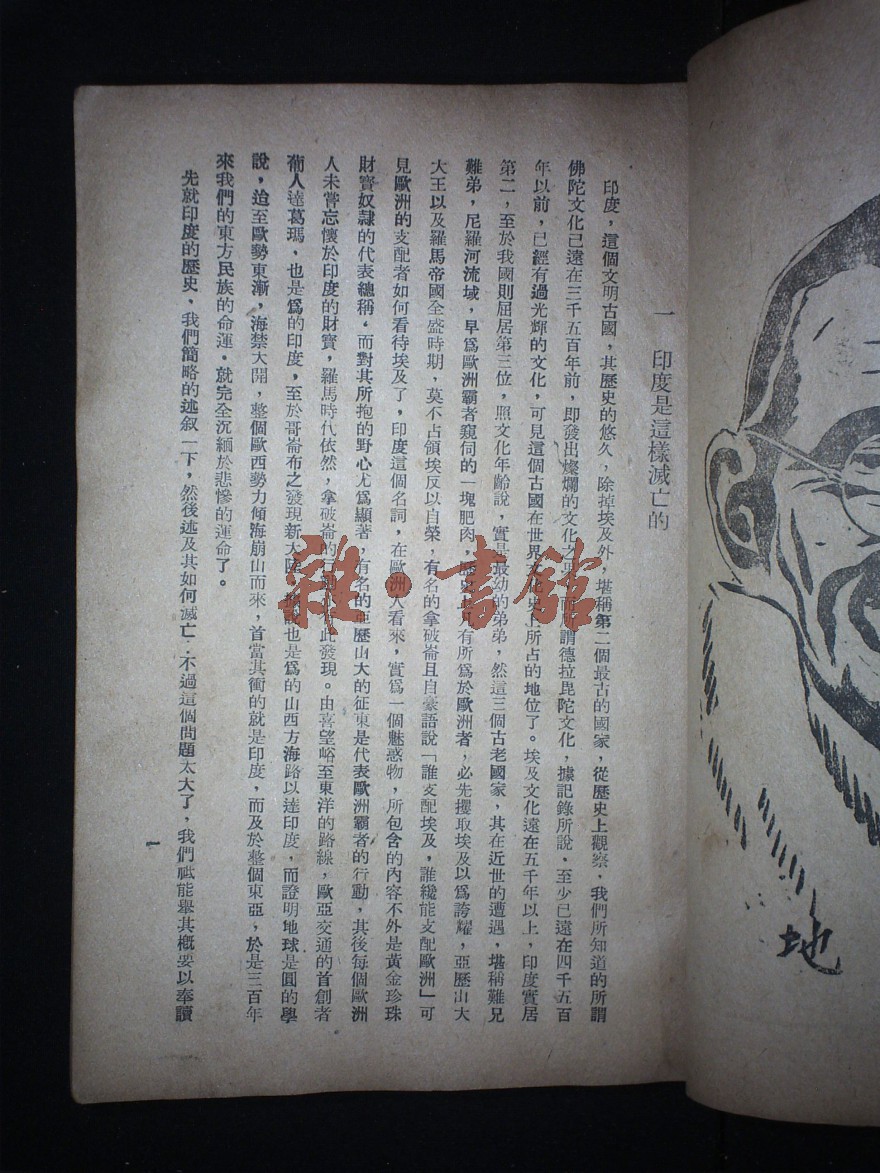 一 印度是這樣滅亡的
印度，這個文明古國，其歷史的悠久，除掉埃及外，堪稱第二個最古的國家，從歷史上觀察，我們所知道的所謂
佛陀文化已遠在三千五百年前，即發出燦爛的文化之 所謂德拉毘陀文化，據記錄所說，至少已遠在四千五百
年以前，已經有過光輝的文化，可見這個古國在世界文化史上所占的地位了。埃及文化遠在五千年以上，印度實居
第二，至於我國則屈居第三位，照文化年齡說，實 最幼的弟弟，然這三個古老國家，其在近世的遭遇，堪稱難兄
難弟，尼羅河流域，早爲歐洲霸者窺伺的一塊肥肉， 有所爲於歐洲者，必先攫取埃及以爲誇耀，亞歷山大
大王以及羅馬帝國全盛時期，莫不占領埃反以自榮，有名的拿破崙且自豪語說「誰支配埃及，誰纔能支配歐洲」可
見歐洲的支配者如何看待埃及了，印度這個名詞，在歐洲人看來，實爲一個魅惑物，所包含的內容不外是黃金珍珠
財寶奴隸的代表總稱，而對其所抱的野心尤爲顯著，有名的亞歷山大的征東是代表歐洲霸者的行動，其後每個歐洲
人未嘗忘懷於印度的財寶，羅馬時代依然，拿破崙的 此發現。由喜望峪至東洋的路線，歐亞交通的首創者
葡人達葛瑪，也是爲的印度，至於哥崙布之發現新大陸， 說也是爲的山西方海路以達印度，而證明地球是圓的學
說，迨至歐勢東漸，海禁大開，整個歐西勢力傾海崩山而來，首當其衝的就是印度，而及於整個東亞，於是三百年
來我們的東方民族的命運，就完全沉緬於悲慘的運命了。
先就印度的歷史，我們簡略的述叙一下，然後述及其如何滅亡：不過這個問題太大了，我們祗能舉其概要以奉讀
一
雜·書館
地